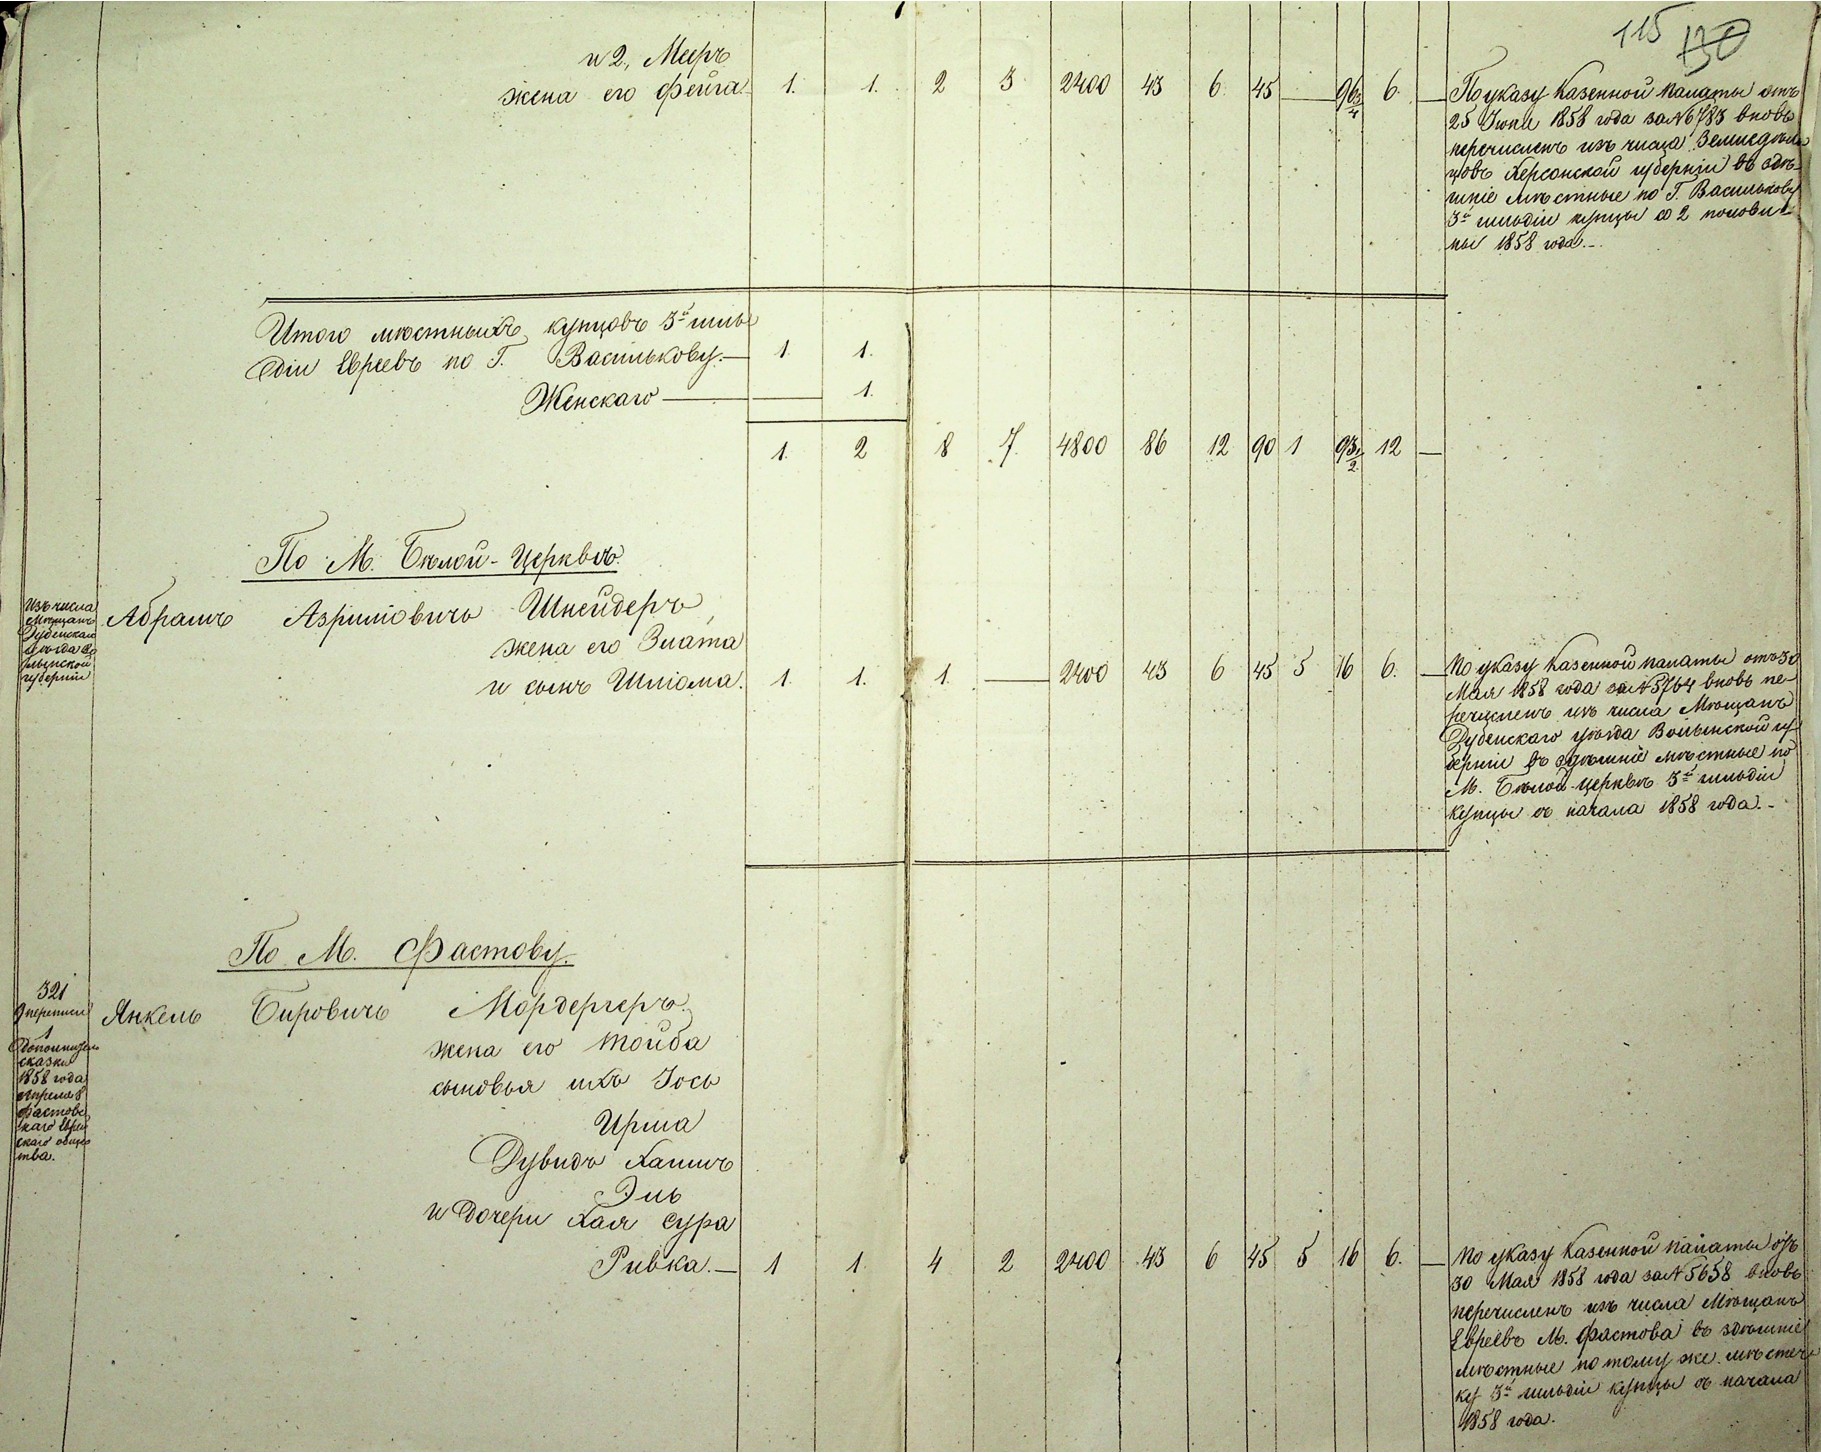 115 130
и 2, Меер
жена его Фейга 1. 1. 2 3 2400 43 6 45 — 96 3/4 6. —
По указу Казенной палаты отъ
25 Июня 1858 года за № 6783 вновь
перечисленъ изъ числа Земледель
цовъ Херсонской губерніи въ здѣ-
шніе мѣстные по Г. Василькову
3й гильдіи купцы со 2 полови-
ны 1858 года.-
Итого мѣстныхъ купцовъ 3й гиль
діи Евреевъ по Г. Василькову.— 1. 1.
Женскаго — 1.
1. 2 8 7. 4800 86 12 90 1 93 1/2 12 —
По М. Бѣлой-Церквѣ.
Изъ числа
Мѣщанъ
Дубенскаго
уѣзда Во
лынской
губерніи
Абрамъ Азриловичъ Шнейдеръ
жена его Злата
и сынъ Шліома. 1. 1. 1. — 2400 43 6 45 5 16 6. —
По указу Казенной палаты отъ 30
Мая 1858 года за № 5764 вновь пе-
речисленъ изъ числа Мѣщанъ
Дубенскаго уѣзда Волынской гу-
берніи въ здѣшніе мѣстные по
М. Бѣлой-Церквѣ 3й гильдіи
купцы съ начала 1858 года.-
По М. Фастову.
321
9 переписи
1
Дополнител
сказки
1858 года
Апреля 8
Фастовс
каго Еврей
скаго общес
тва.
Янкель Бировичъ Мордергеръ.
жена его Тойба
сыновья ихъ Іось
Ирша
Дувидъ Хаимъ
Эль
и дочери Хая Сура
Ривка.— 1 1. 4 2 2400 43 6 45 5 16 6. —
По указу Казенной палаты отъ
30 Мая 1858 года за № 5658 вновь
перечисленъ изъ числа Мѣщанъ
Евреевъ М. Фастова въ здѣшніе
мѣстные по тому же мѣстеч
ку 3й гильдіи купцы съ начала
1858 года.